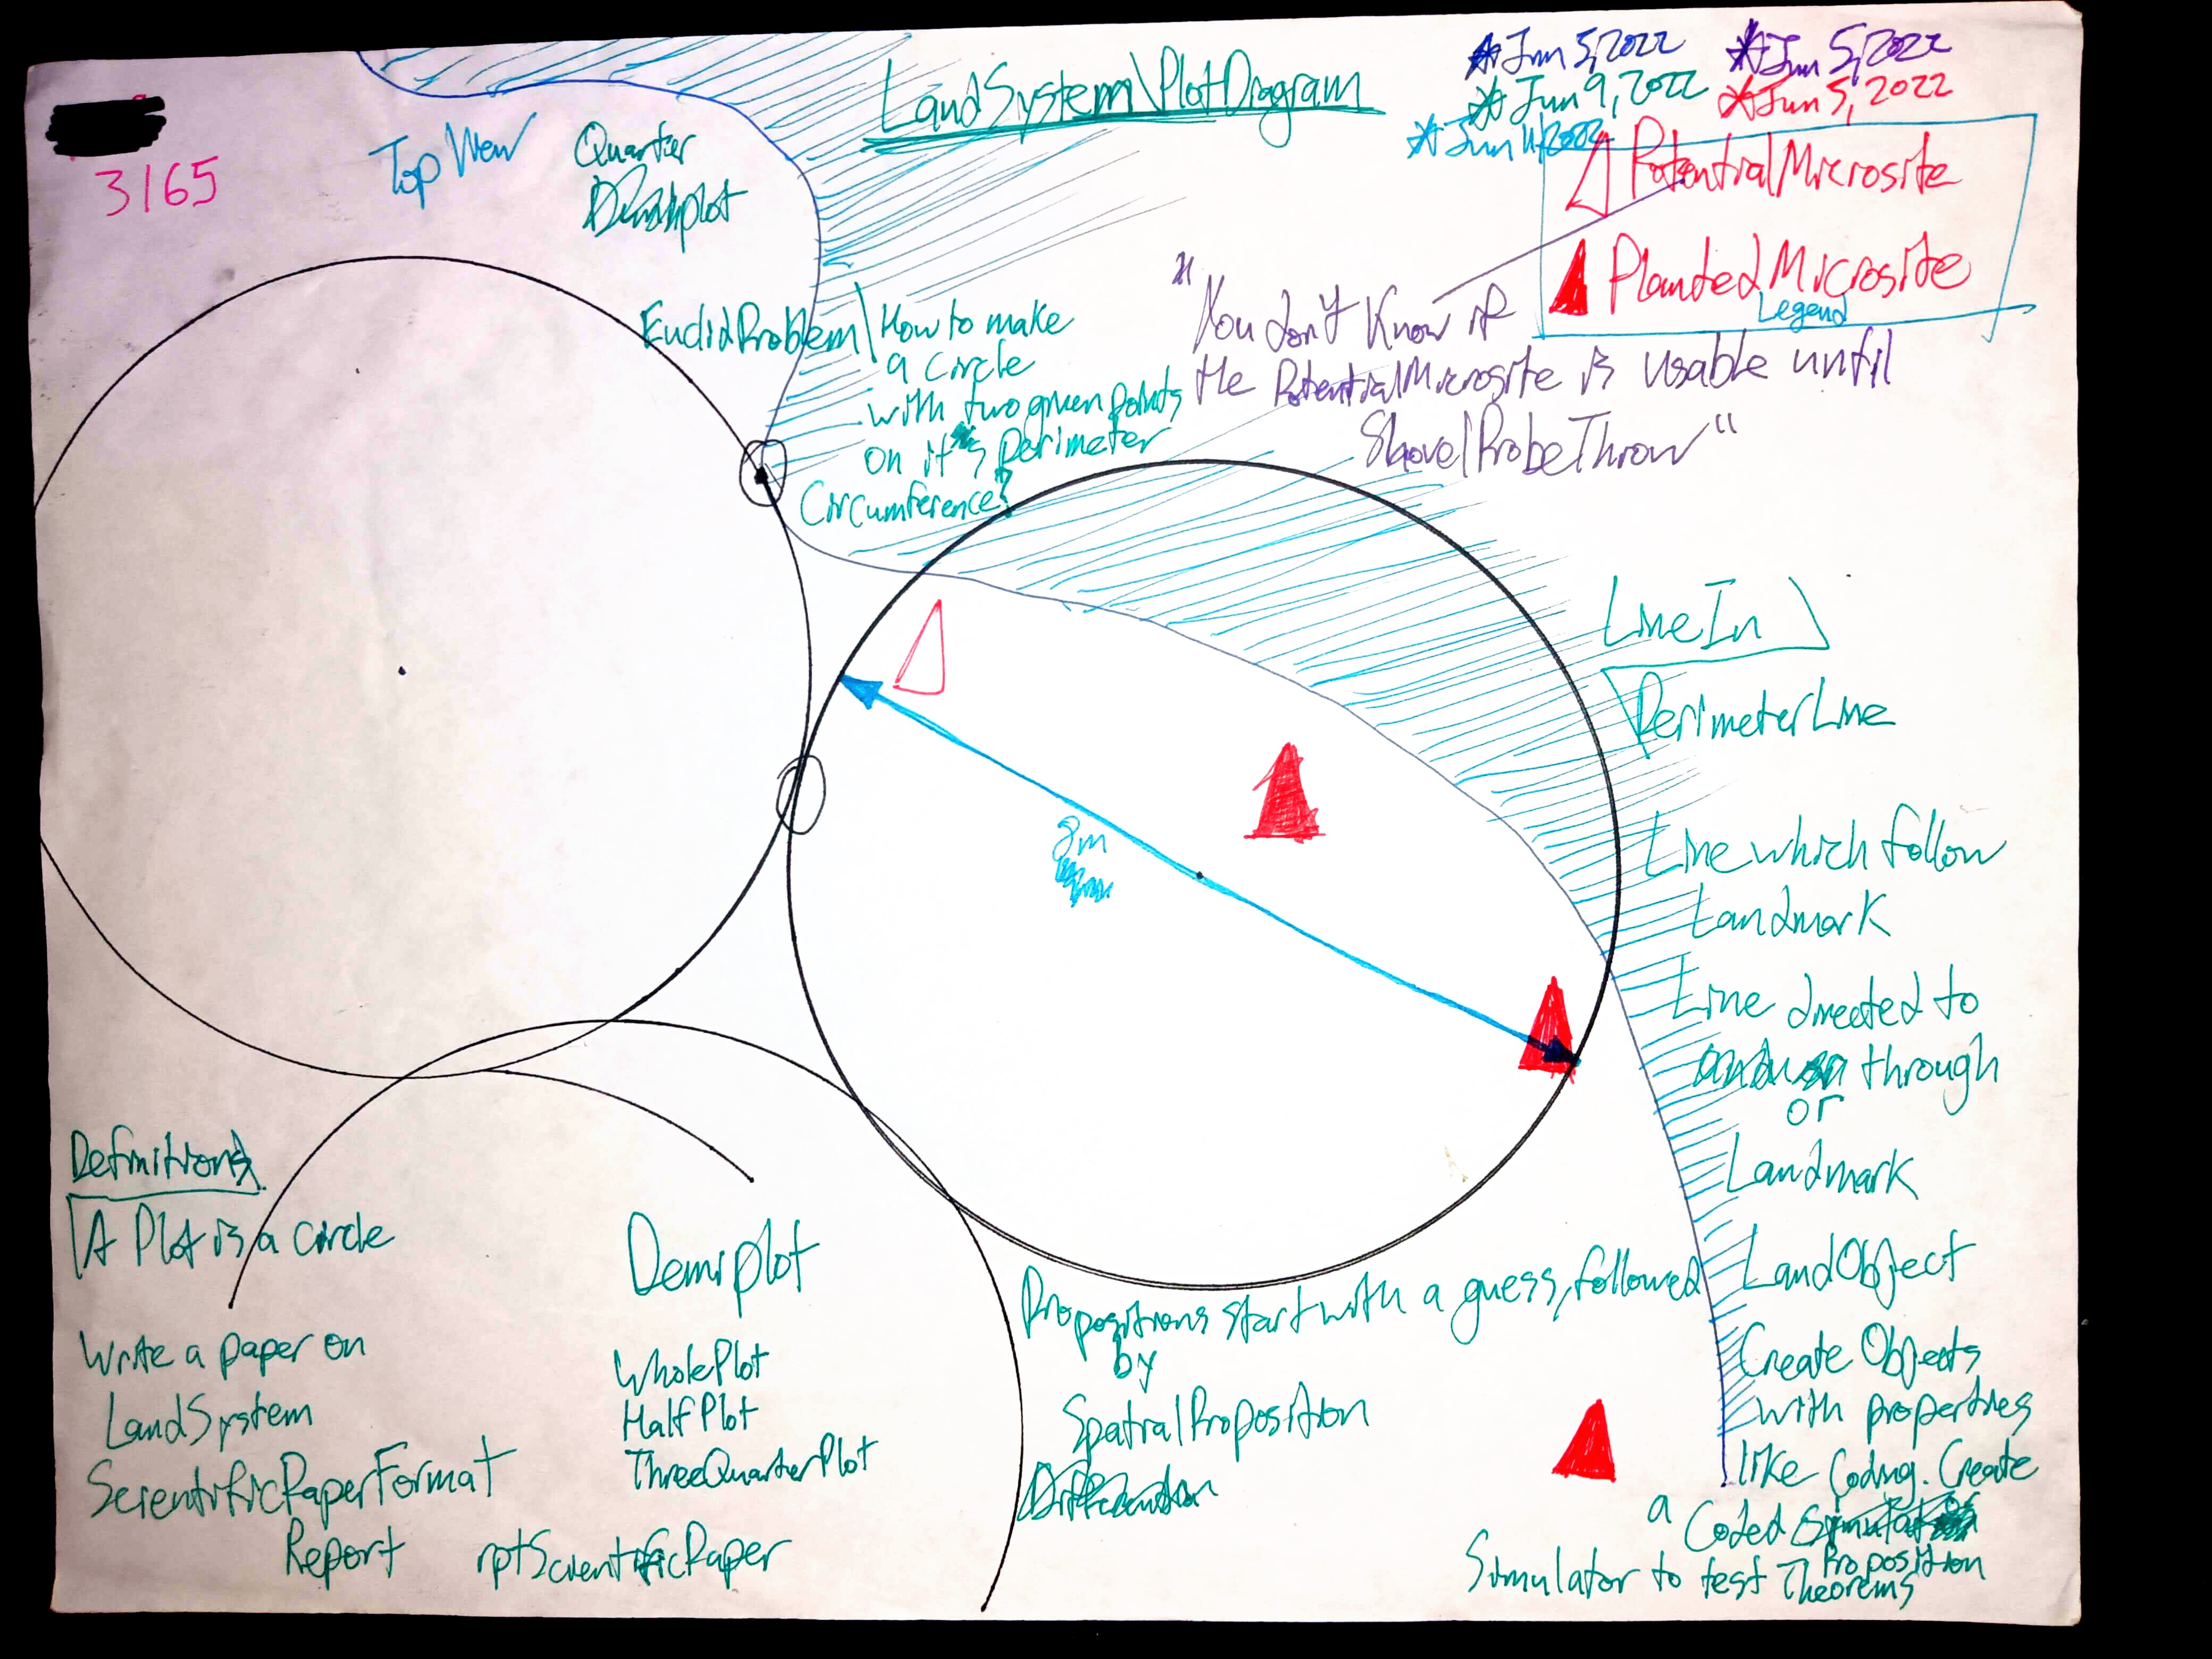 LandSystem\PlotDiagram
*Jun 5, 2022
*Jun 5, 2022
*Jun 9, 2022
*Jun 5, 2022
3165
Top View
Quarter
plot
PotentialMicrosite
PlantedMicrosite
Legend
EuclidProblem\How to make
a circle
with two given points
on it's perimeter
Circumference?
"You don't Know if
the PotentialMicrosite is usable until
ShovelProbeThrow"
LineIn
PerimeterLine
8m
Line which follow
Landmark
Line directed to
through
or
Landmark
LandObject
Create Objects
with properties
like Coding. Create
a Coded
Proposition
Simulator to test Theorems
Definitions
A Plot is a circle
Demiplot
WholePlot
HalfPlot
ThreeQuarterPlot
Write a paper on
LandSystem
ScientificPaperFormat
Report
rptScientificPaper
Propositions start with a guess, followed
by
SpatialProposition